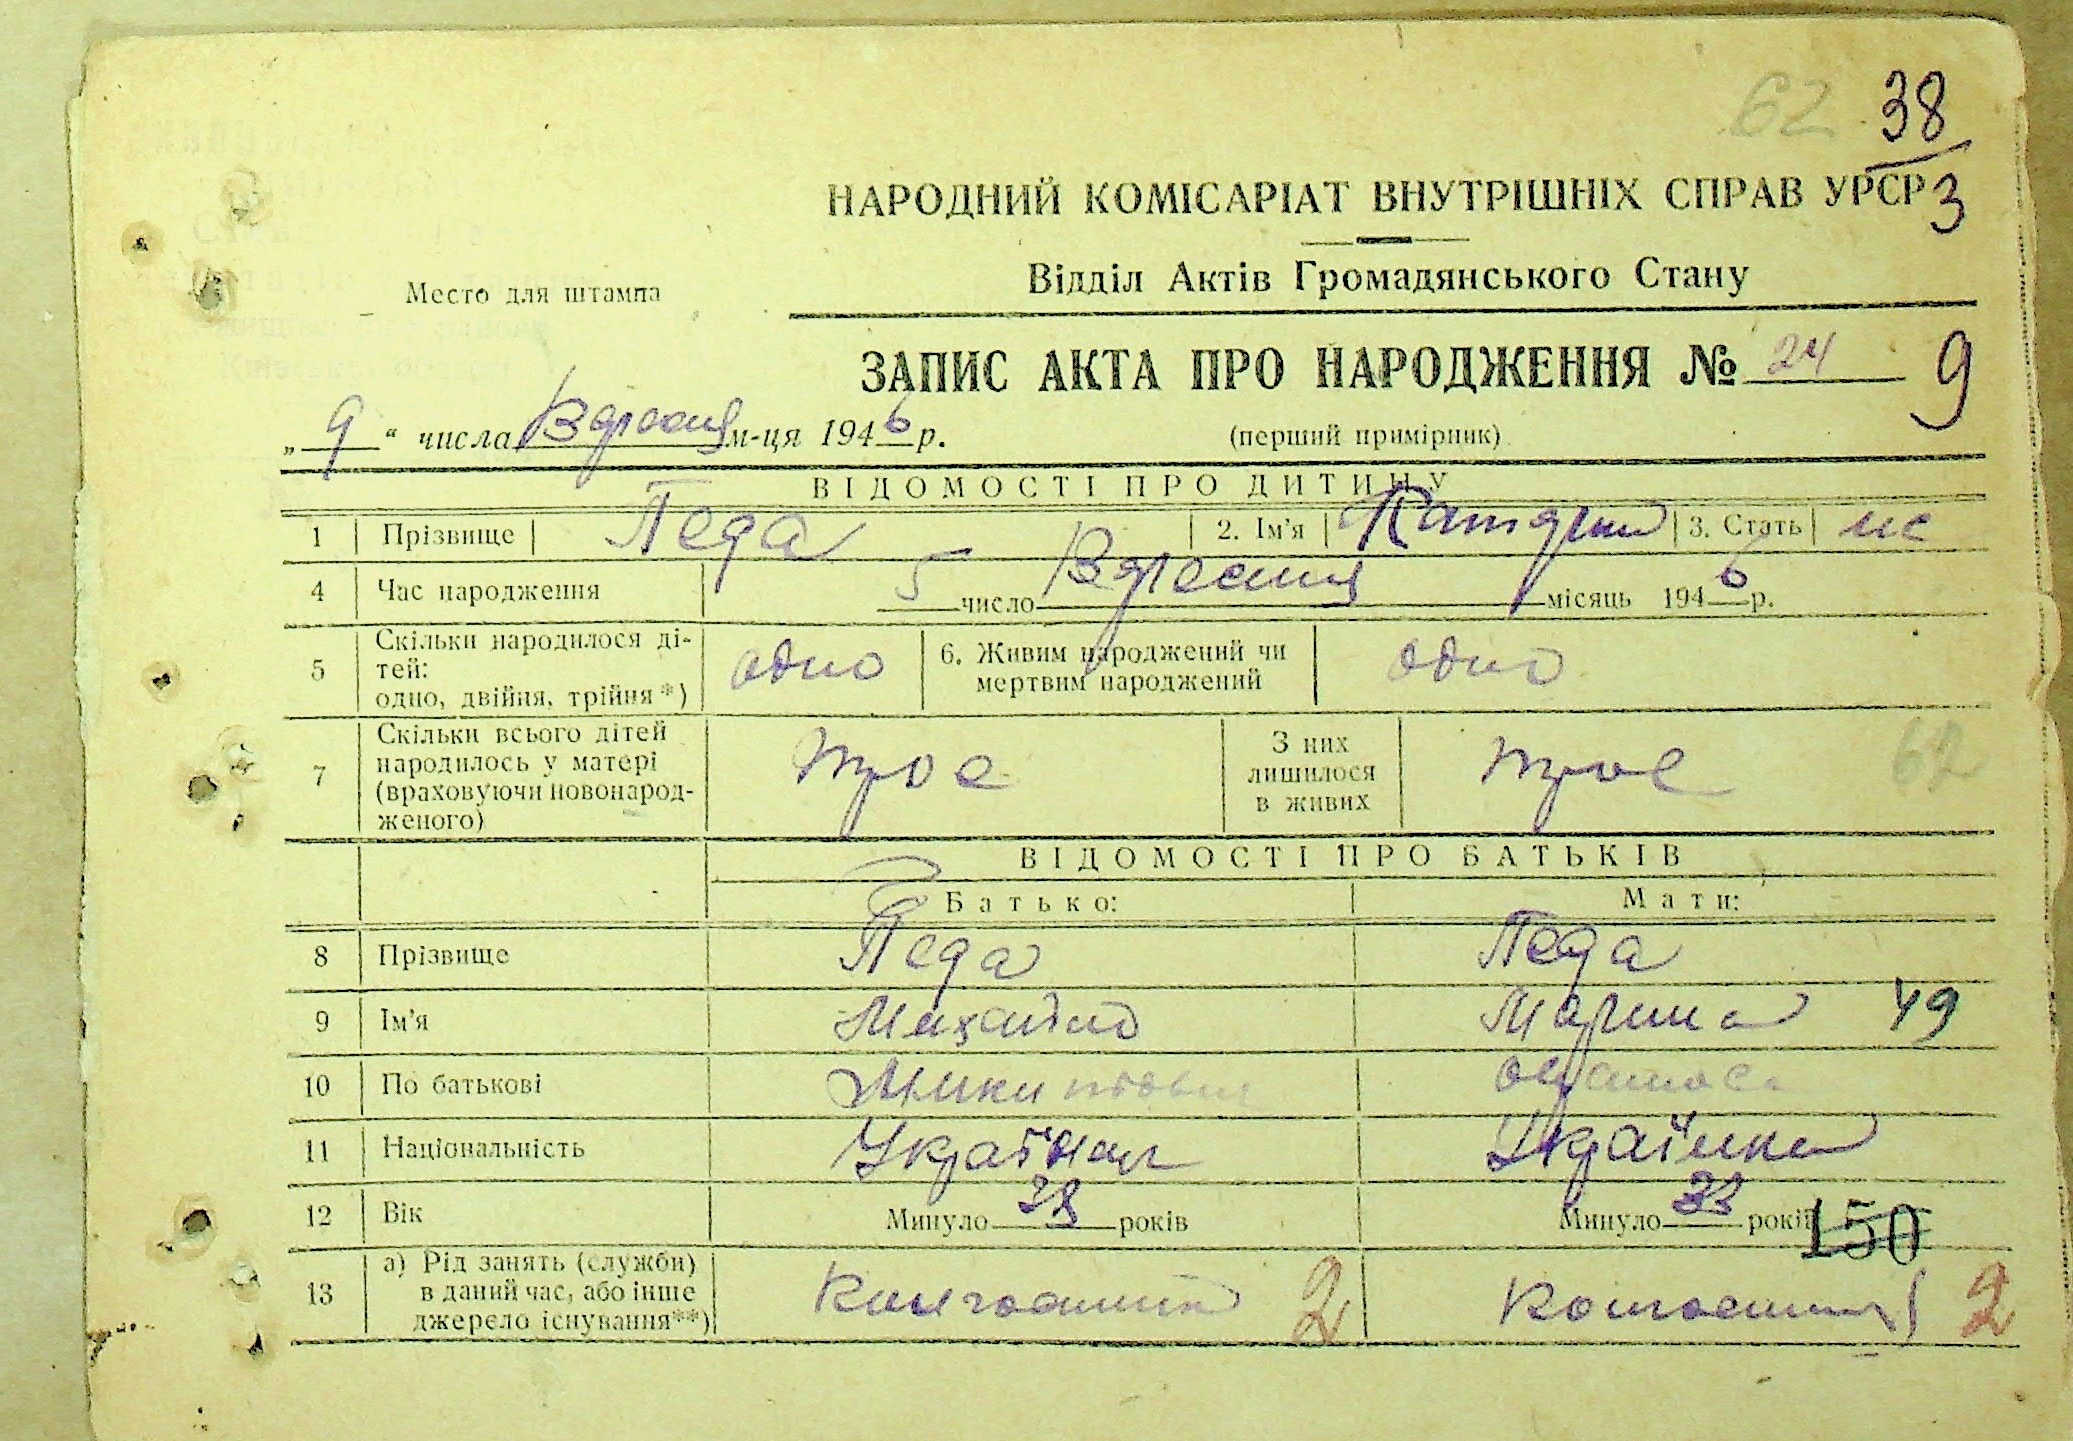 62 38
НАРОДНИЙ КОМІСАРІАТ ВНУТРІШНІХ СПРАВ УРСР 3
Відділ Актів Громадянського Стану
Место для штампа
ЗАПИС АКТА ПРО НАРОДЖЕННЯ № 24 9
„ 9 “ числа Вересня м-ця 1946 р.
(перший примірник)
ВІДОМОСТІ ПРО ДИТИНУ
1 Прізвище Педа 2. Ім'я 3. Стать
4 Час народження 5 число Вересня місяць 1946 р.
5 Скільки народилося ді-
тей:
одно, двійня, трійня*) одно 6. Живим народжений чи
мертвим народжений одно
7 Скільки всього дітей
народилось у матері
(враховуючи новонарод-
женого) троє З них
лишилося
в живих троє 62
ВІДОМОСТІ ПРО БАТЬКІВ
Батько: Мати:
8 Прізвище Педа Педа
9 Ім'я Михайло Марина 49
10 По батькові
11 Національність Українец Українка
12 Вік Минуло років Минуло 33 років 150
13 а) Рід занять (служби)
в даний час, або інше
джерело існування**) 2 2